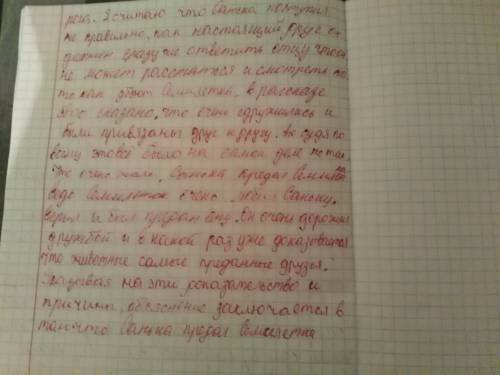 рога. Я считаю что Санька поступил
не правильно, как настоящий друг он
должен сразу же ответить отцу что он
не может расстаться и смотреть на
то как убют Семилетка, в рассказе
это сказано, что очень сдружились и
были привязаны друг к другу. Но судя по
всему это всё было на самом деле не так.
Это очень жаль, Санька предал Семилет
ведь Семилеток очень любил Саньку.
верил и был предан ему. Он очень дорожил
дружбой и в какой раз уже доказывается
что животные самые преданные друзья.
на эти доказательство и
причины, обяснение заключается в
том что Санька предал Семилетка